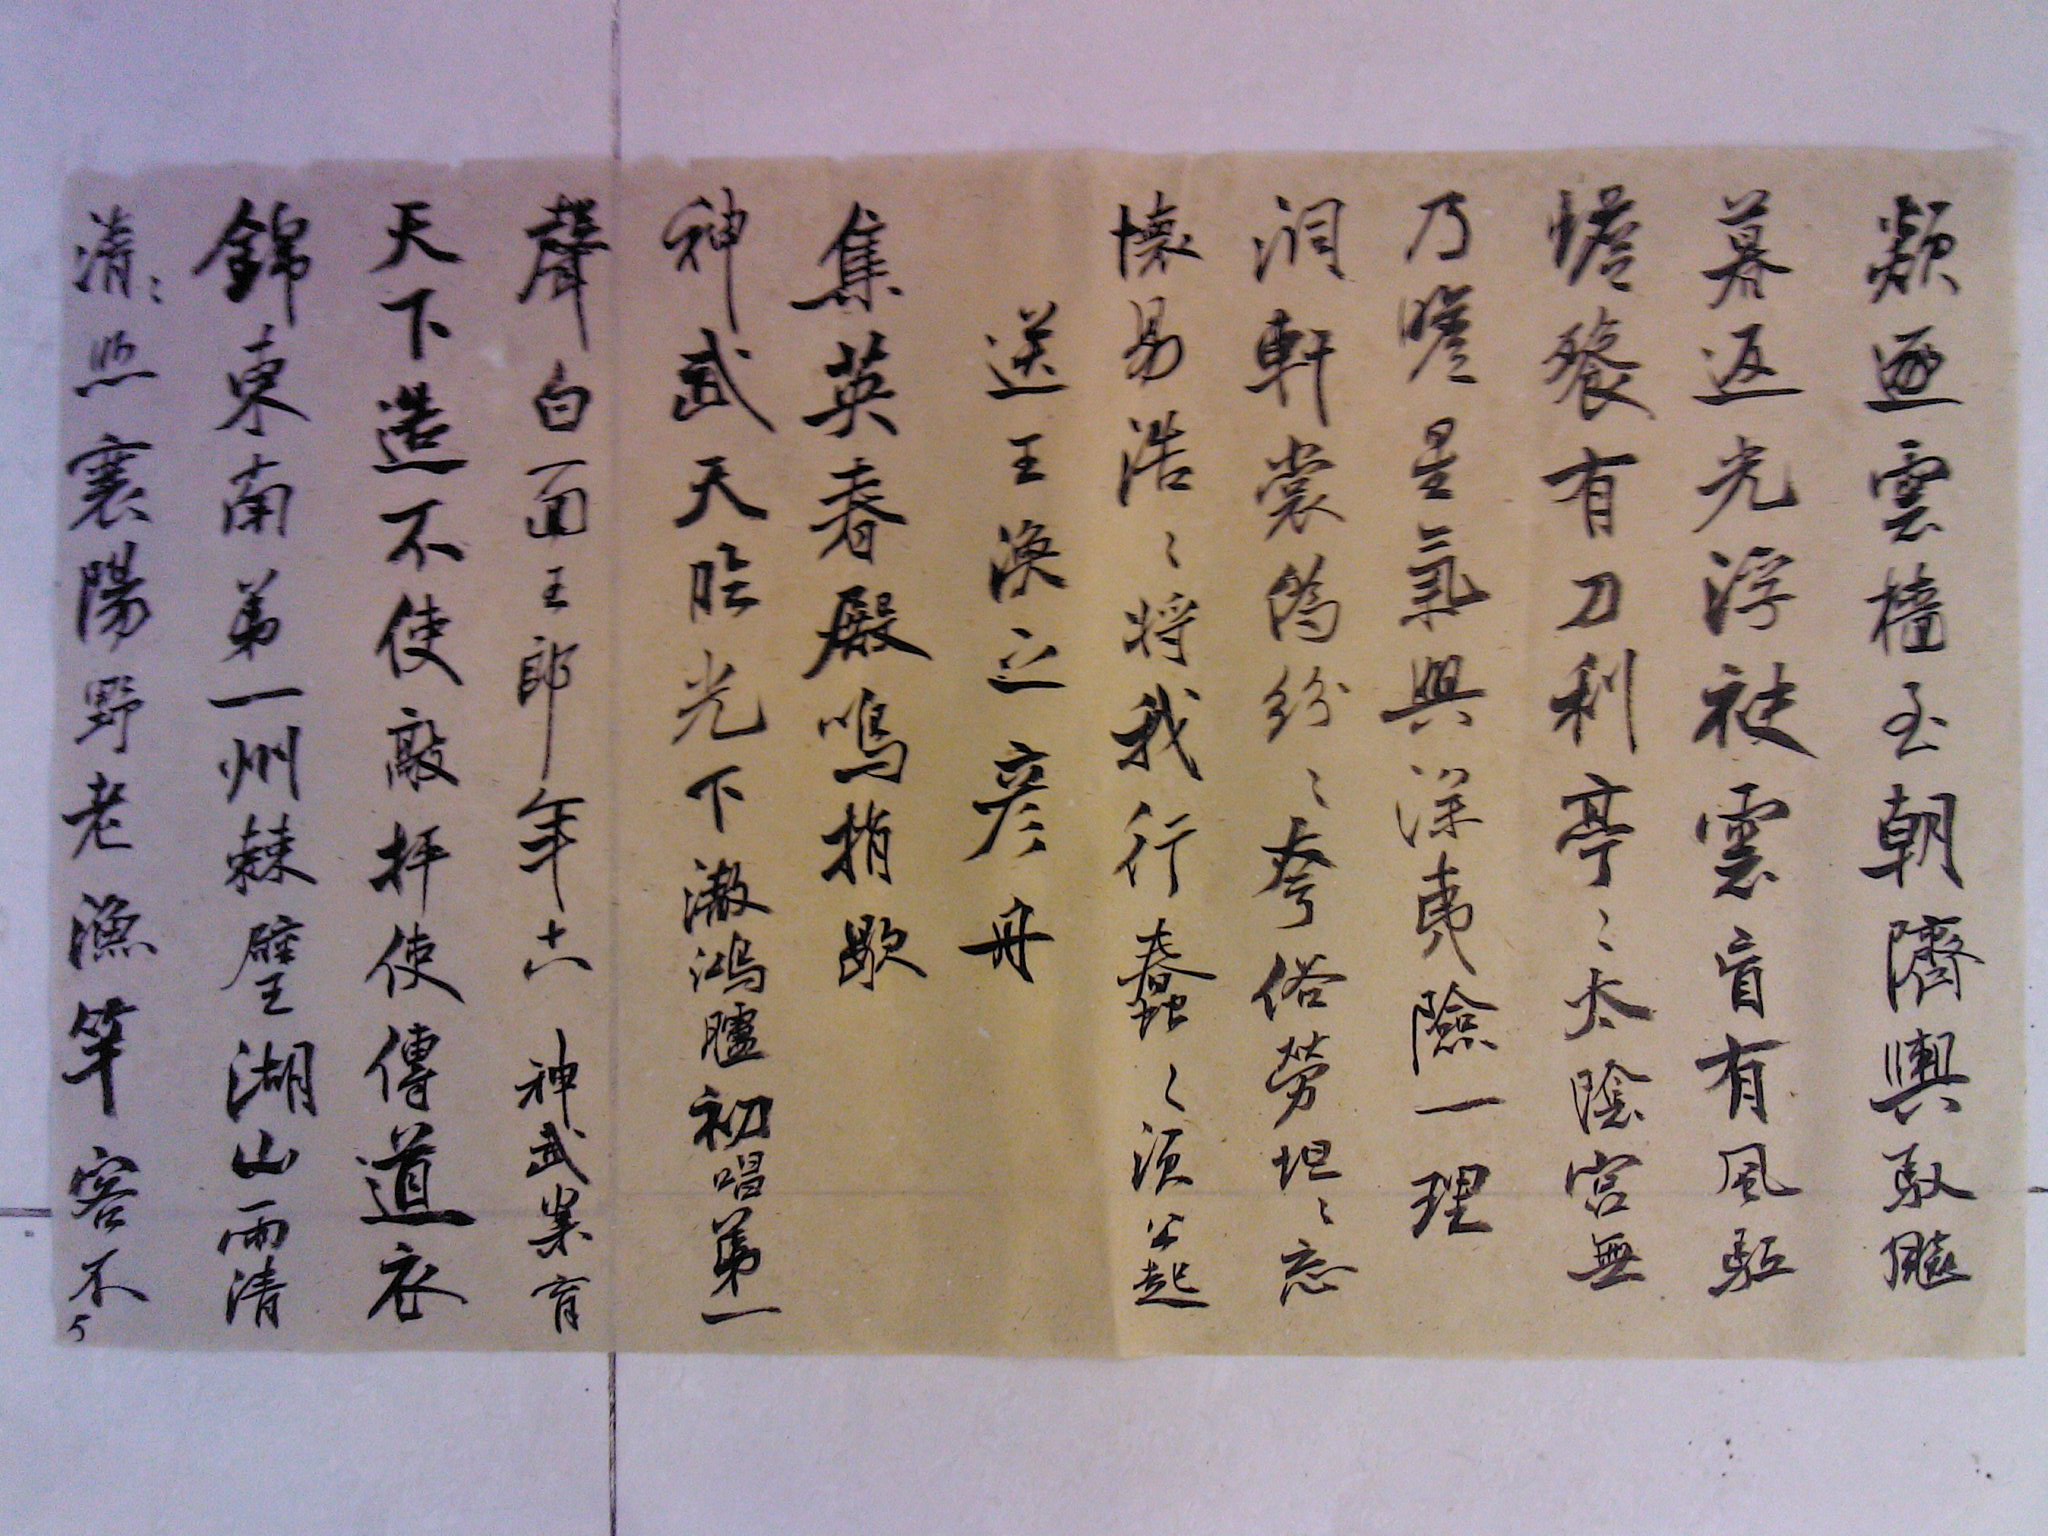 颣逦雲檣至朝隮輿馭飈
暮返光浮袂雲盲有風駈
蟾餮有刀利亭〻太陰宮無
乃瞻星氣興深夷險一理
洞軒裳偽紛〻夸俗勞坦〻忘
懷易浩〻將我行蠢〻須公起
送王渙之彦舟
集英春殿鳴捎歇
神武天臨光下澈鴻臚初唱第一
聲白面王郎年十八神武業育
天下造不使敲抨使傳道衣
錦東南第一州棘璧湖山兩清
清〻照襄陽野老漁竿客不